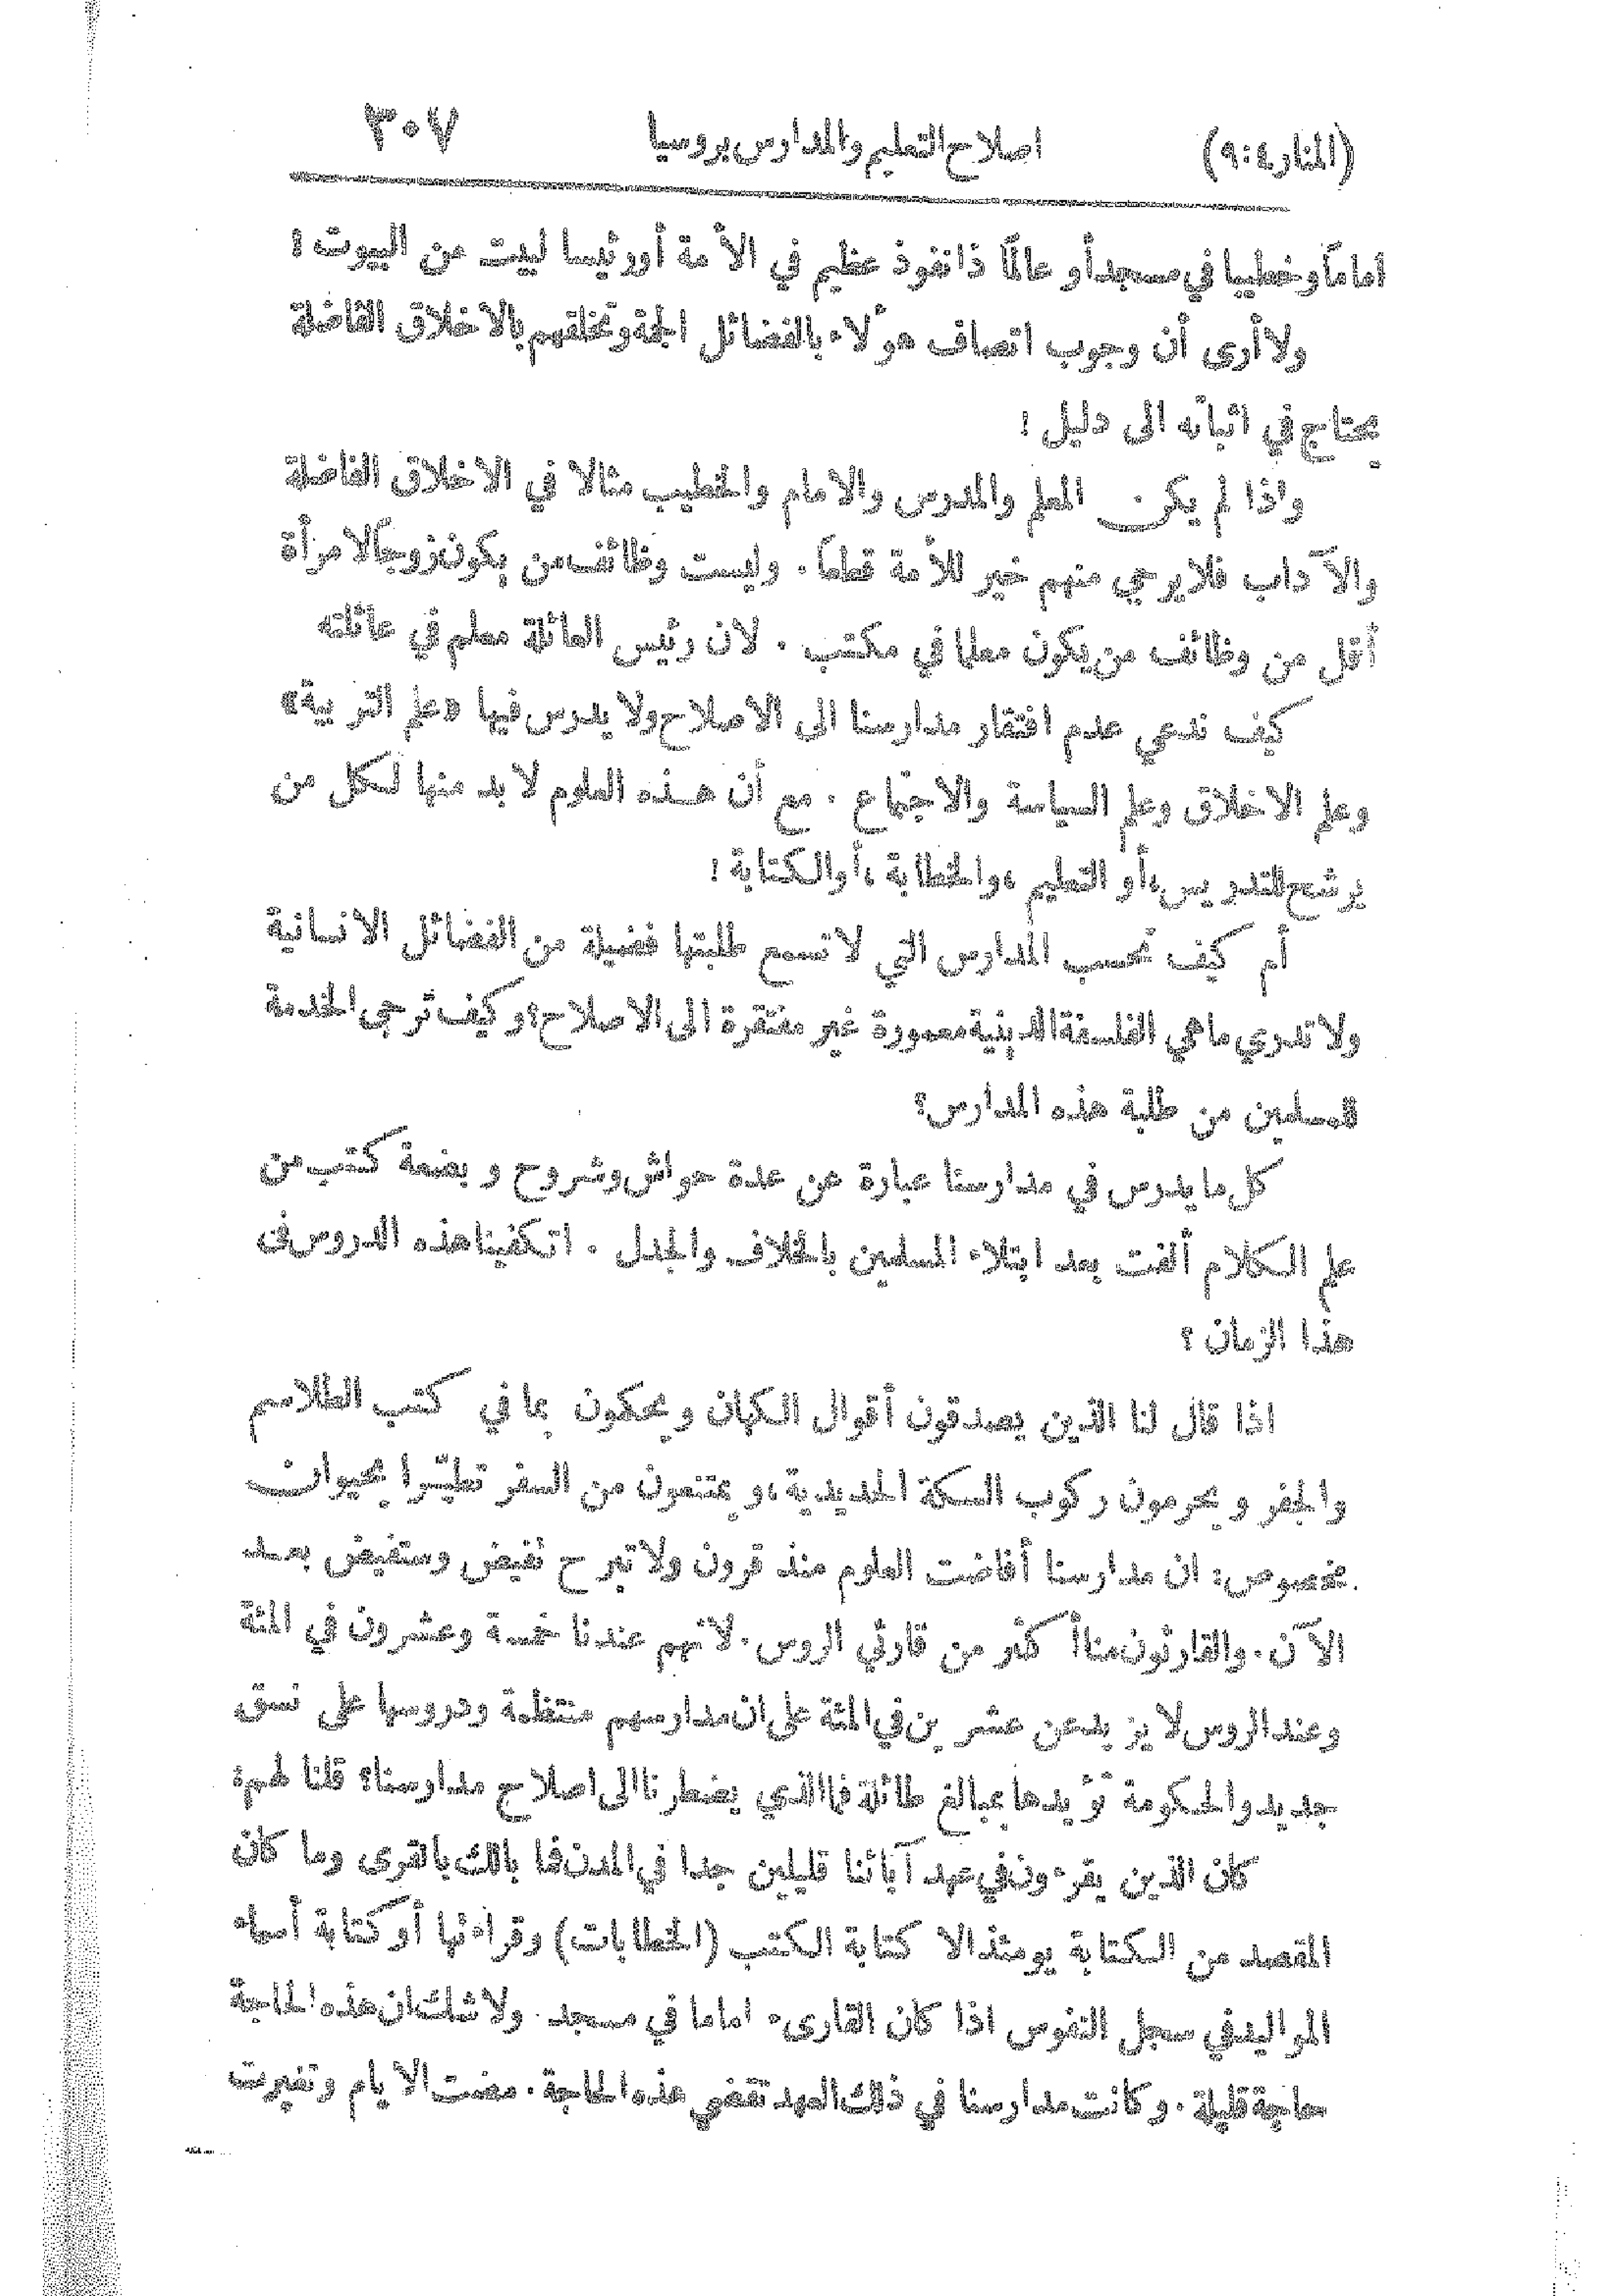 (المنار ٤:٩) اصلاح التعليم والمدارس بروسيا ٣٠٧
اماماً وخطيبا في مسجد أو عالمًا ذا نفوذ عظيم في الأمة أو رئيسا لبيت من البيوت !
ولا أرى أن وجوب اتصاف هؤلاء بالفضائل الجمة وتخلقهم بالاخلاق الفاضلة
يحتاج في اثباته الى دليل !
واذا لم يكن المعلم والمدرس والامام والخطيب مثالا في الاخلاق الفاضلة
والآداب فلا يرجى منهم خير للأمة قطعاً . وليست وظائف من يكون زوجاً لامرأة
أقل من وظائف من يكون معلما في مكتب . لان رئيس العائلة معلم في عائلته
كيف ندعي عدم افتقار مدارسنا الى الاصلاح ولا يدرس فيها «علم التربية»
وعلم الاخلاق وعلم السياسة والاجتماع . مع أن هذه العلوم لابد منها لكل من
يرشح للتدريس ، أو التعليم ، والخطابة ، أو الكتابة !
أم كيف نحسب المدارس التي لا تسمع طلبتها فضيلة من الفضائل الانسانية
ولا تدري ما هي الفلسفة الدينية معمورة غير مفتقرة الى الاصلاح؟ وكيف نرجى الخدمة
للمسلمين من طلبة هذه المدارس؟
كل ما يدرس في مدارسنا عبارة عن عدة حواش وشروح وبضعة كتب من
علم الكلام ألفت بعد ابتلاء المسلمين بالخلاف والجدل . اتكفينا هذه الدروس فى
هذا الزمان ؟
اذا قال لنا الذين يصدقون أقوال الكهان ويحكمون بما في كتب الطلاسم
والجفر ويحرمون ركوب السكة الحديدية ، ويمتنعون من السفر تطيّرا بحيوان
مخصوص : ان مدارسنا أفاضت العلوم منذ قرون ولا تبرح تفيض وستفيض بعد
الآن . والقارئون منا أكثر من قارئي الروس . لأنهم عندنا خمسة وعشرون في المئة
وعند الروس لا يزيد عن عشرين في المئة على ان مدارسهم منتظمة ودروسها على نسق
جديد والحكومة تؤيدها بمبالغ طائلة فما الذي يضطرنا الى اصلاح مدارسنا؟ قلنا لهم :
كان الذين يقرءون في عهد آبائنا قليلين جدا في المدن فما بالك بالقرى وما كان
المقصد من الكتابة يومئذ الا كتابة الكتب (الخطابات) وقراءتها أو كتابة أسماء
المواليد في سجل النفوس اذا كان القارىء اماما في مسجد . ولا شك ان هذه الحاجة
حاجة قليلة . وكانت مدارسنا في ذلك العهد تقضي هذه الحاجة . مضت الايام وتغيرت